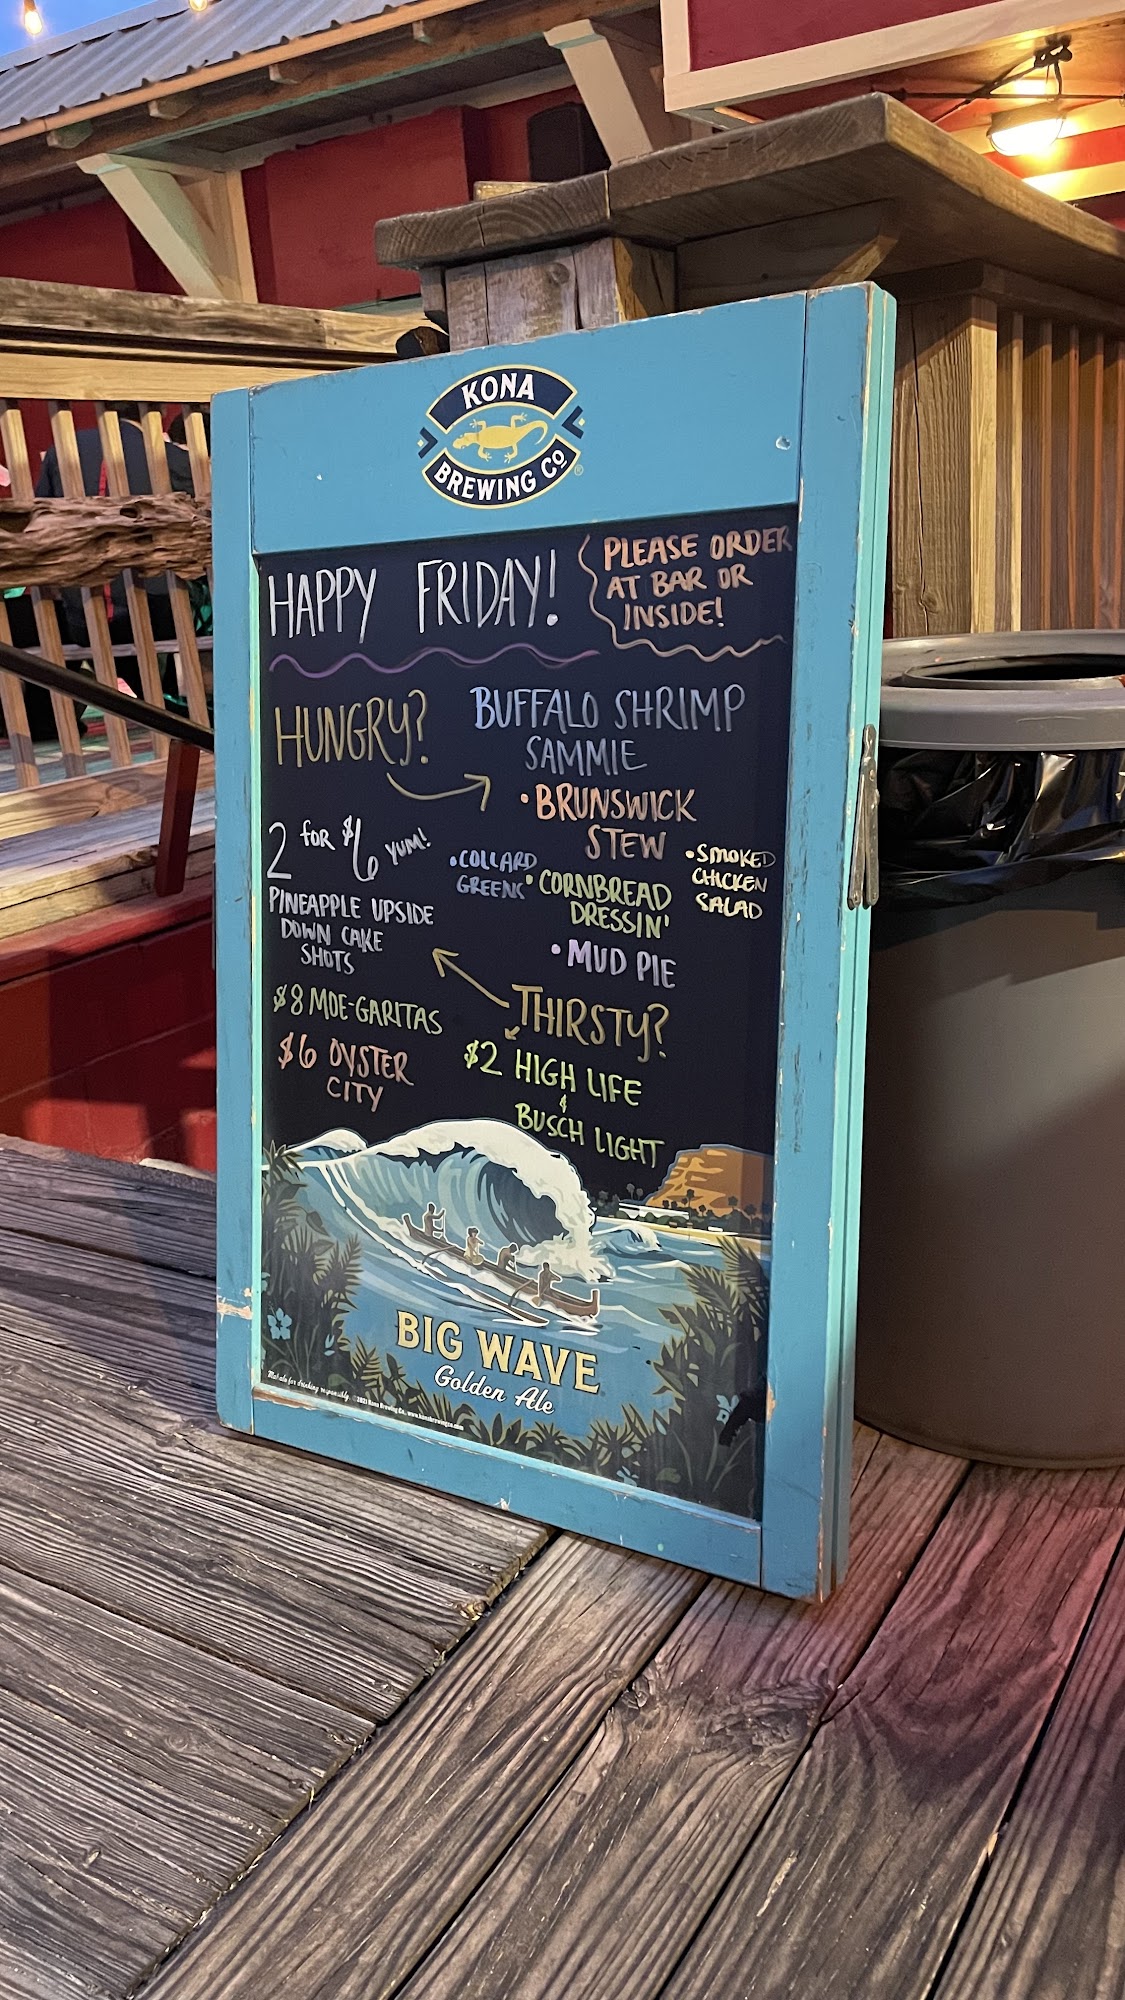 KONA
BREWING CO
HAPPY FRIDAY!
PLEASE ORDER
AT BAR OR
INSIDE!
HUNGRY?
BUFFALO SHRIMP
SAMMIE
• BRUNSWICK
STEW
• COLLARD
GREENS
• CORNBREAD
DRESSIN'
• SMOKED
CHICKEN
SALAD
• MUD PIE
THIRSTY?
2 FOR $6 YUM!
PINEAPPLE UPSIDE
DOWN CAKE
SHOTS
$8 MOE-GARITAS
$6 OYSTER
CITY
$2 HIGH LIFE
&
BUSCH LIGHT
BIG WAVE
Golden Ale